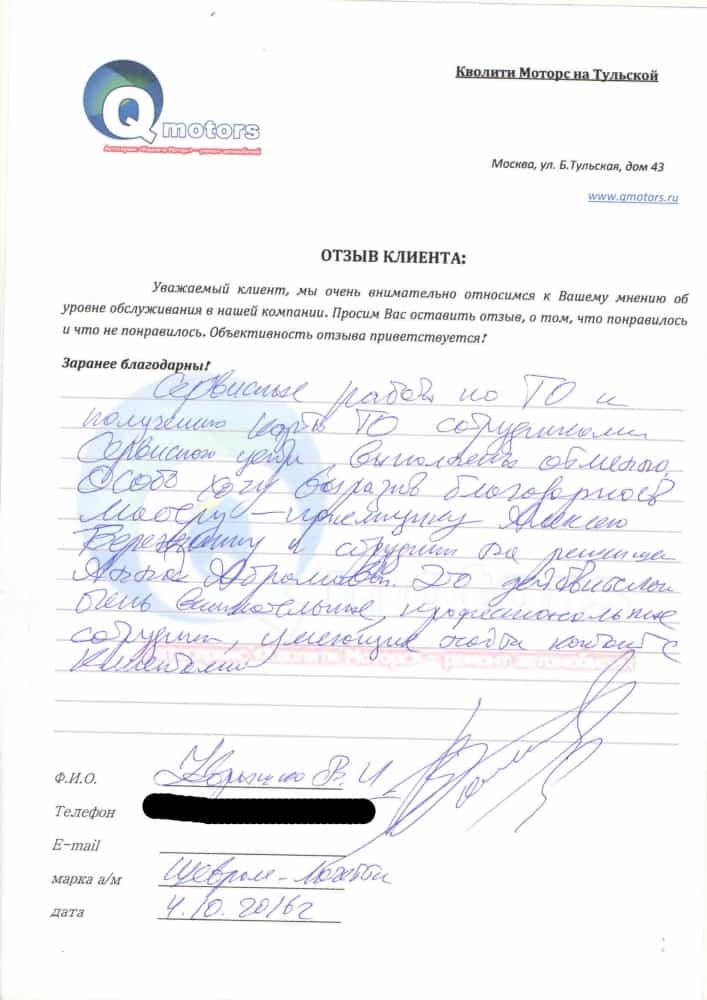 Кволити Моторс на Тульской
Q motors
Москва, ул. Б.Тульская, дом 43
www.qmotors.ru
ОТЗЫВ КЛИЕНТА:
Уважаемый клиент, мы очень внимательно относимся к Вашему мнению об
уровне обслуживания в нашей компании. Просим Вас оставить отзыв, о том, что понравилось
и что не понравилось. Объективность отзыва приветствуется!
Заранее благодарны!
Сервисные работы по ТО и
получению карты ТО сотрудниками
Сервисного центра выполнены отлично.
Особо хочу выразить благодарность
Мастеру-приемщику Алексею
и сотруднику на ресепшн
Это действительно
очень внимательные, профессиональные
сотрудники, умеющие найти контакт с
клиентами
Ф.И.О. В. И.
Телефон
E-mail
марка а/м Шевроле-Лачетти
дата 4.10.2016г